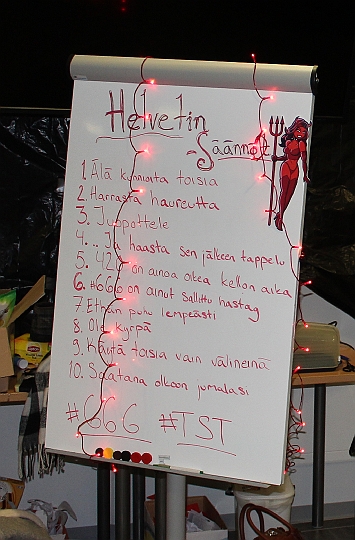 Helvetin
-Säännöt
1. Älä kunnioita toisia
2. Harrasta haureutta
3. Juopottele
4. .. Ja haasta sen jälkeen tappelu
5. 420 on ainoa oikea kellon aika
6. #666 on ainut sallittu hastag
7. Ethän puhu lempeästi
8. Ole kyrpä
9. Käytä toisia vain välineinä
10. Saatana olkoon jumalasi
#666 #TST